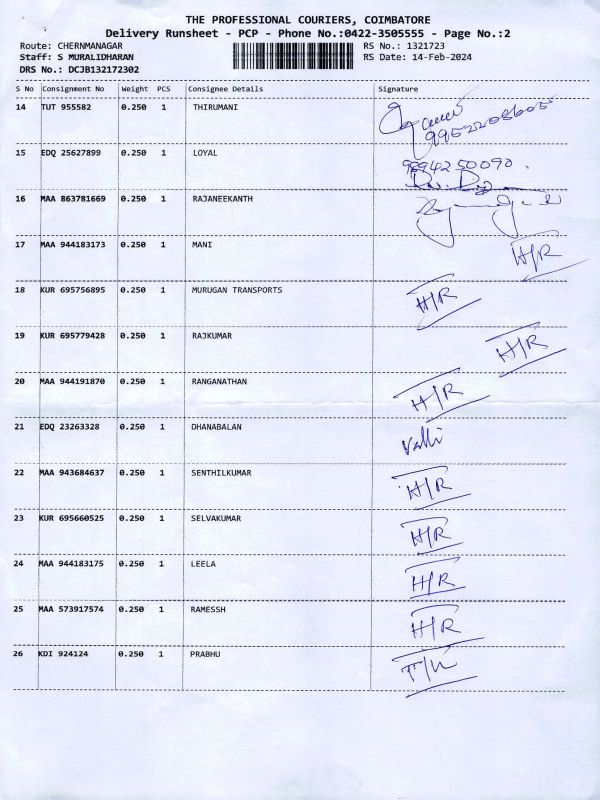 THE PROFESSIONAL COURIERS, COIMBATORE
Delivery Runsheet - PCP - Phone No.:0422-3505555 - Page No.:2
Route: CHERNMANAGAR RS No.: 1321723
Staff: S MURALIDHARAN RS Date: 14-Feb-2024
DRS No.: DCJB132172302
S No Consignment No Weight PCS Consignee Details Signature
14 TUT 955582 0.250 1 THIRUMANI
9952208605
15 EDQ 25627899 0.250 1 LOYAL 9894250090.
16 MAA 863781669 0.250 1 RAJANEEKANTH
17 MAA 944183173 0.250 1 MANI H/R
18 KUR 695756895 0.250 1 MURUGAN TRANSPORTS H/R
19 KUR 695779428 0.250 1 RAJKUMAR H/R
20 MAA 944191870 0.250 1 RANGANATHAN H/R
21 EDQ 23263328 0.250 1 DHANABALAN Valli
22 MAA 943684637 0.250 1 SENTHILKUMAR H/R
23 KUR 695660525 0.250 1 SELVAKUMAR H/R
24 MAA 944183175 0.250 1 LEELA H/R
25 MAA 573917574 0.250 1 RAMESSH H/R
26 KDI 924124 0.250 1 PRABHU